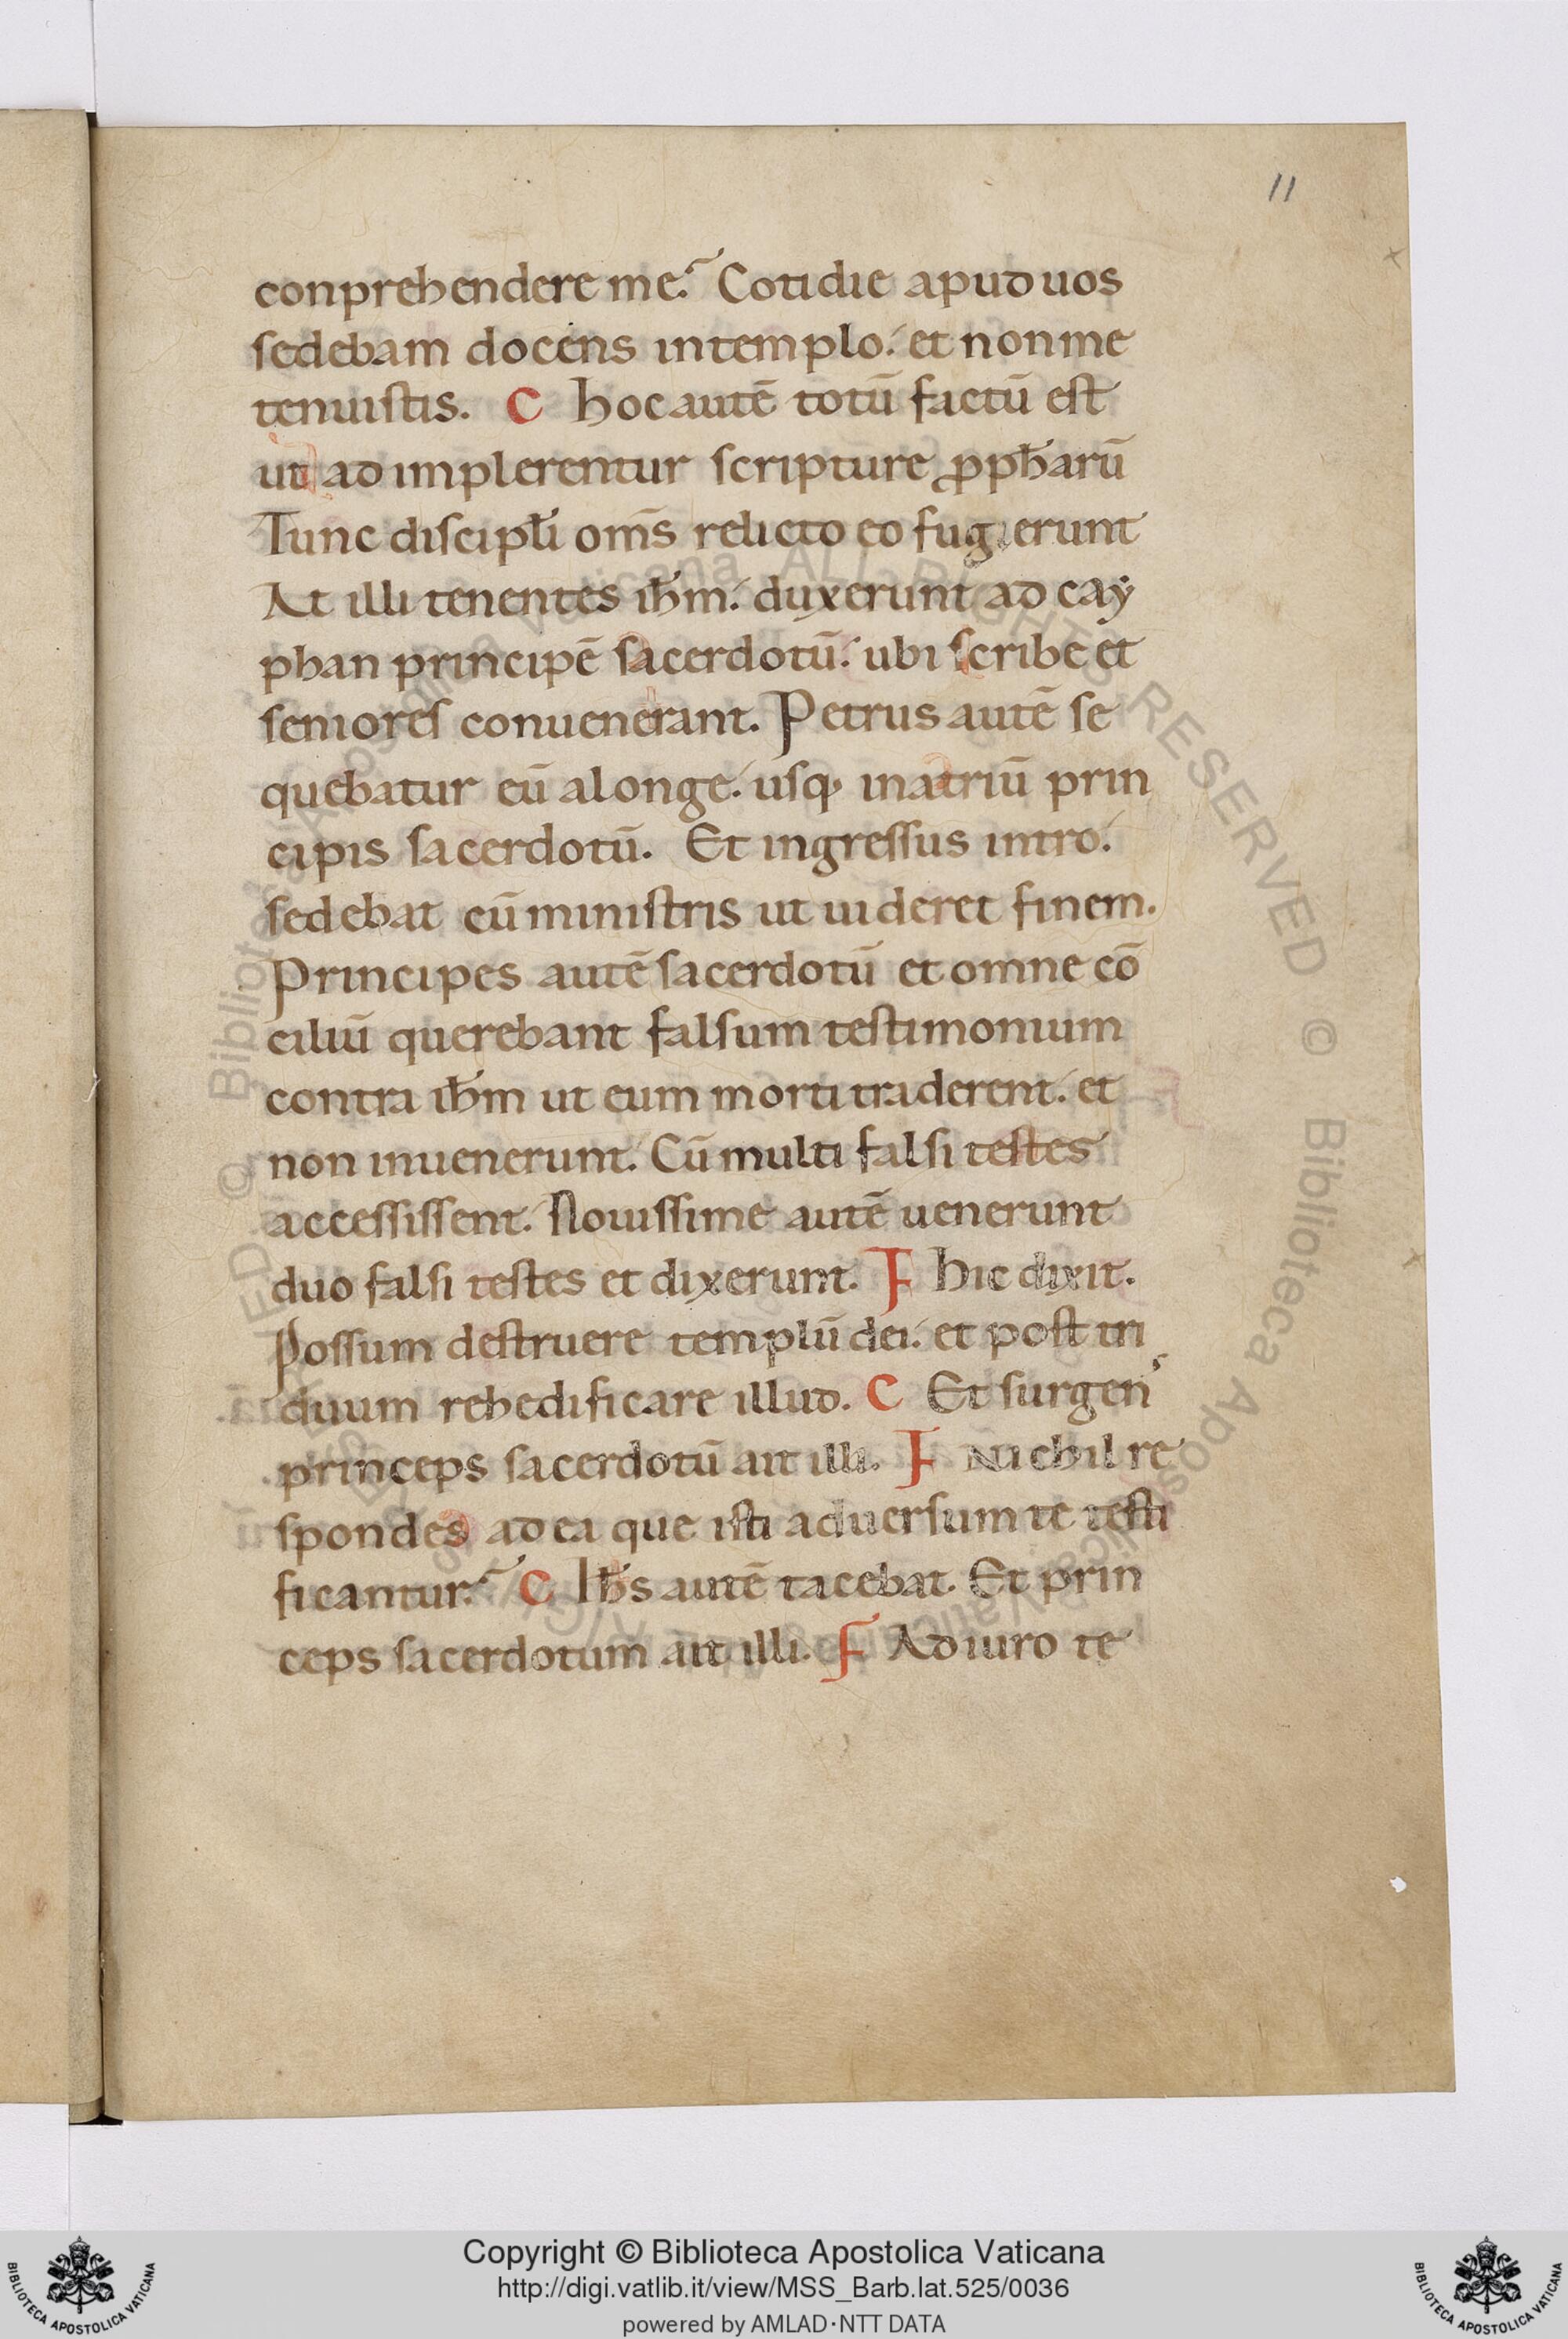 11
conprehendere me? Cotidie apud uos
sedebam docens in templo. et non me
tenuistis. C hoc autē totū factū est
ut adimplerentur scripture ꝓph̄arū
Tunc discipl̄i om̄s relicto eo fugierunt
At illi tenentes ih̄m. duxerunt ad cay
phan principē sacerdotū. ubi scribe et
seniores conuenerant. Petrus autē se
quebatur eū alonge. usq; in atriū prin
cipis sacerdotū. Et ingressus intro.
sedebat cū ministris ut uideret finem.
Principes autē sacerdotū et omne cō
ciliū querebant falsum testimonium
contra ih̄m ut eum morti traderent. et
non inuenerunt. Cū multi falsi testes
accessissent. Nouissime autē uenerunt
duo falsi testes et dixerunt. F hic dixit.
Possum destruere templū dei. et post tri
duum rehedificare illud. C Et surgens
princeps sacerdotū ait illi. F Nichil re
spondes ad ea que isti aduersum te testi
ficantur? C Ih̄s autē tacebat. Et prin
ceps sacerdotum ait illi. F Adiuro te
Copyright © Biblioteca Apostolica Vaticana
http://digi.vatlib.it/view/MSS_Barb.lat.525/0036
powered by AMLAD·NTT DATA
BIBLIOTECA APOSTOLICA VATICANA
BIBLIOTECA APOSTOLICA VATICANA